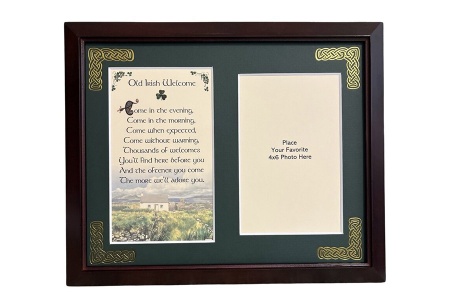 Old Irish Welcome
Come in the evening,
Come in the morning,
Come when expected,
Come without warning,
Thousands of welcomes
You'll find here before you
And the oftener you come
The more we'll adore you.
Place
Your Favorite
4x6 Photo Here